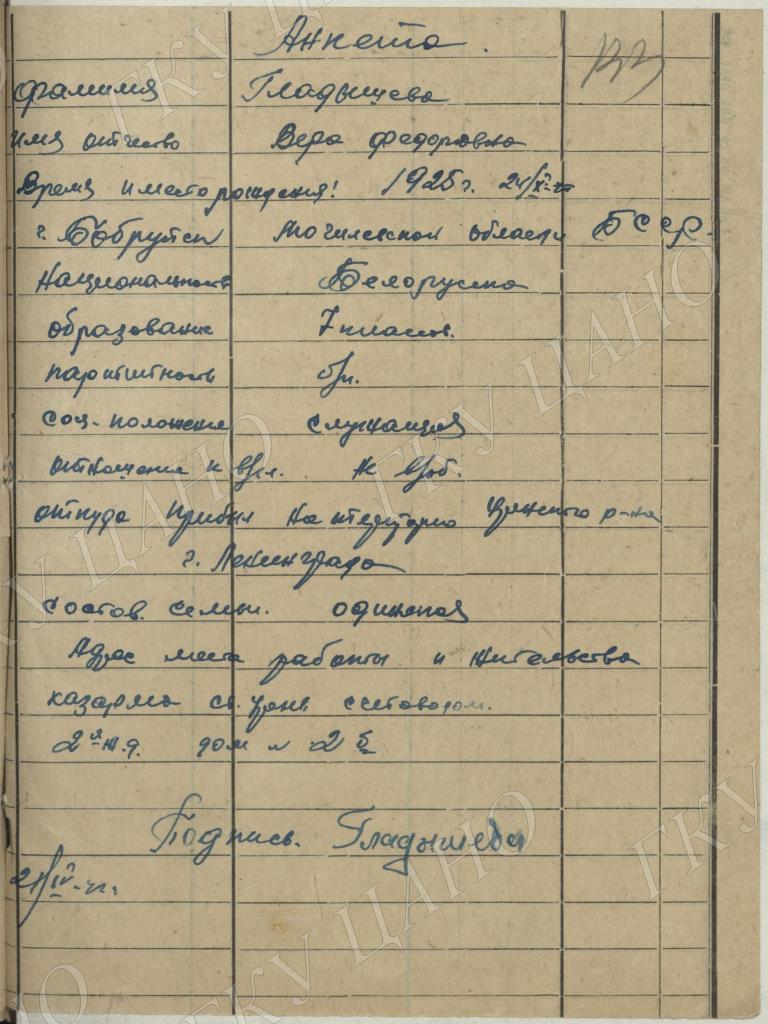 Анкета.
133
фамилия Гладышева
имя отчество Вера Федоровна
Время и место рождения! 1925 г. 24/XI
г. Бобруйск Могилевской области БССР.
Национальность Белоруска
образование 7 класов.
партийность б/п.
соц-положение служащая
отношение к в/сл. Не в/об.
откуда прибыл на територию р-на
г. Ленинграда
состав. семьи. одинокая
Адрес места работы и жительства
казарма ст. счетоводом.
2я ж.д. дом № 2 б
Подпись. Гладышева
21/IV
ГКУ ЦАНО